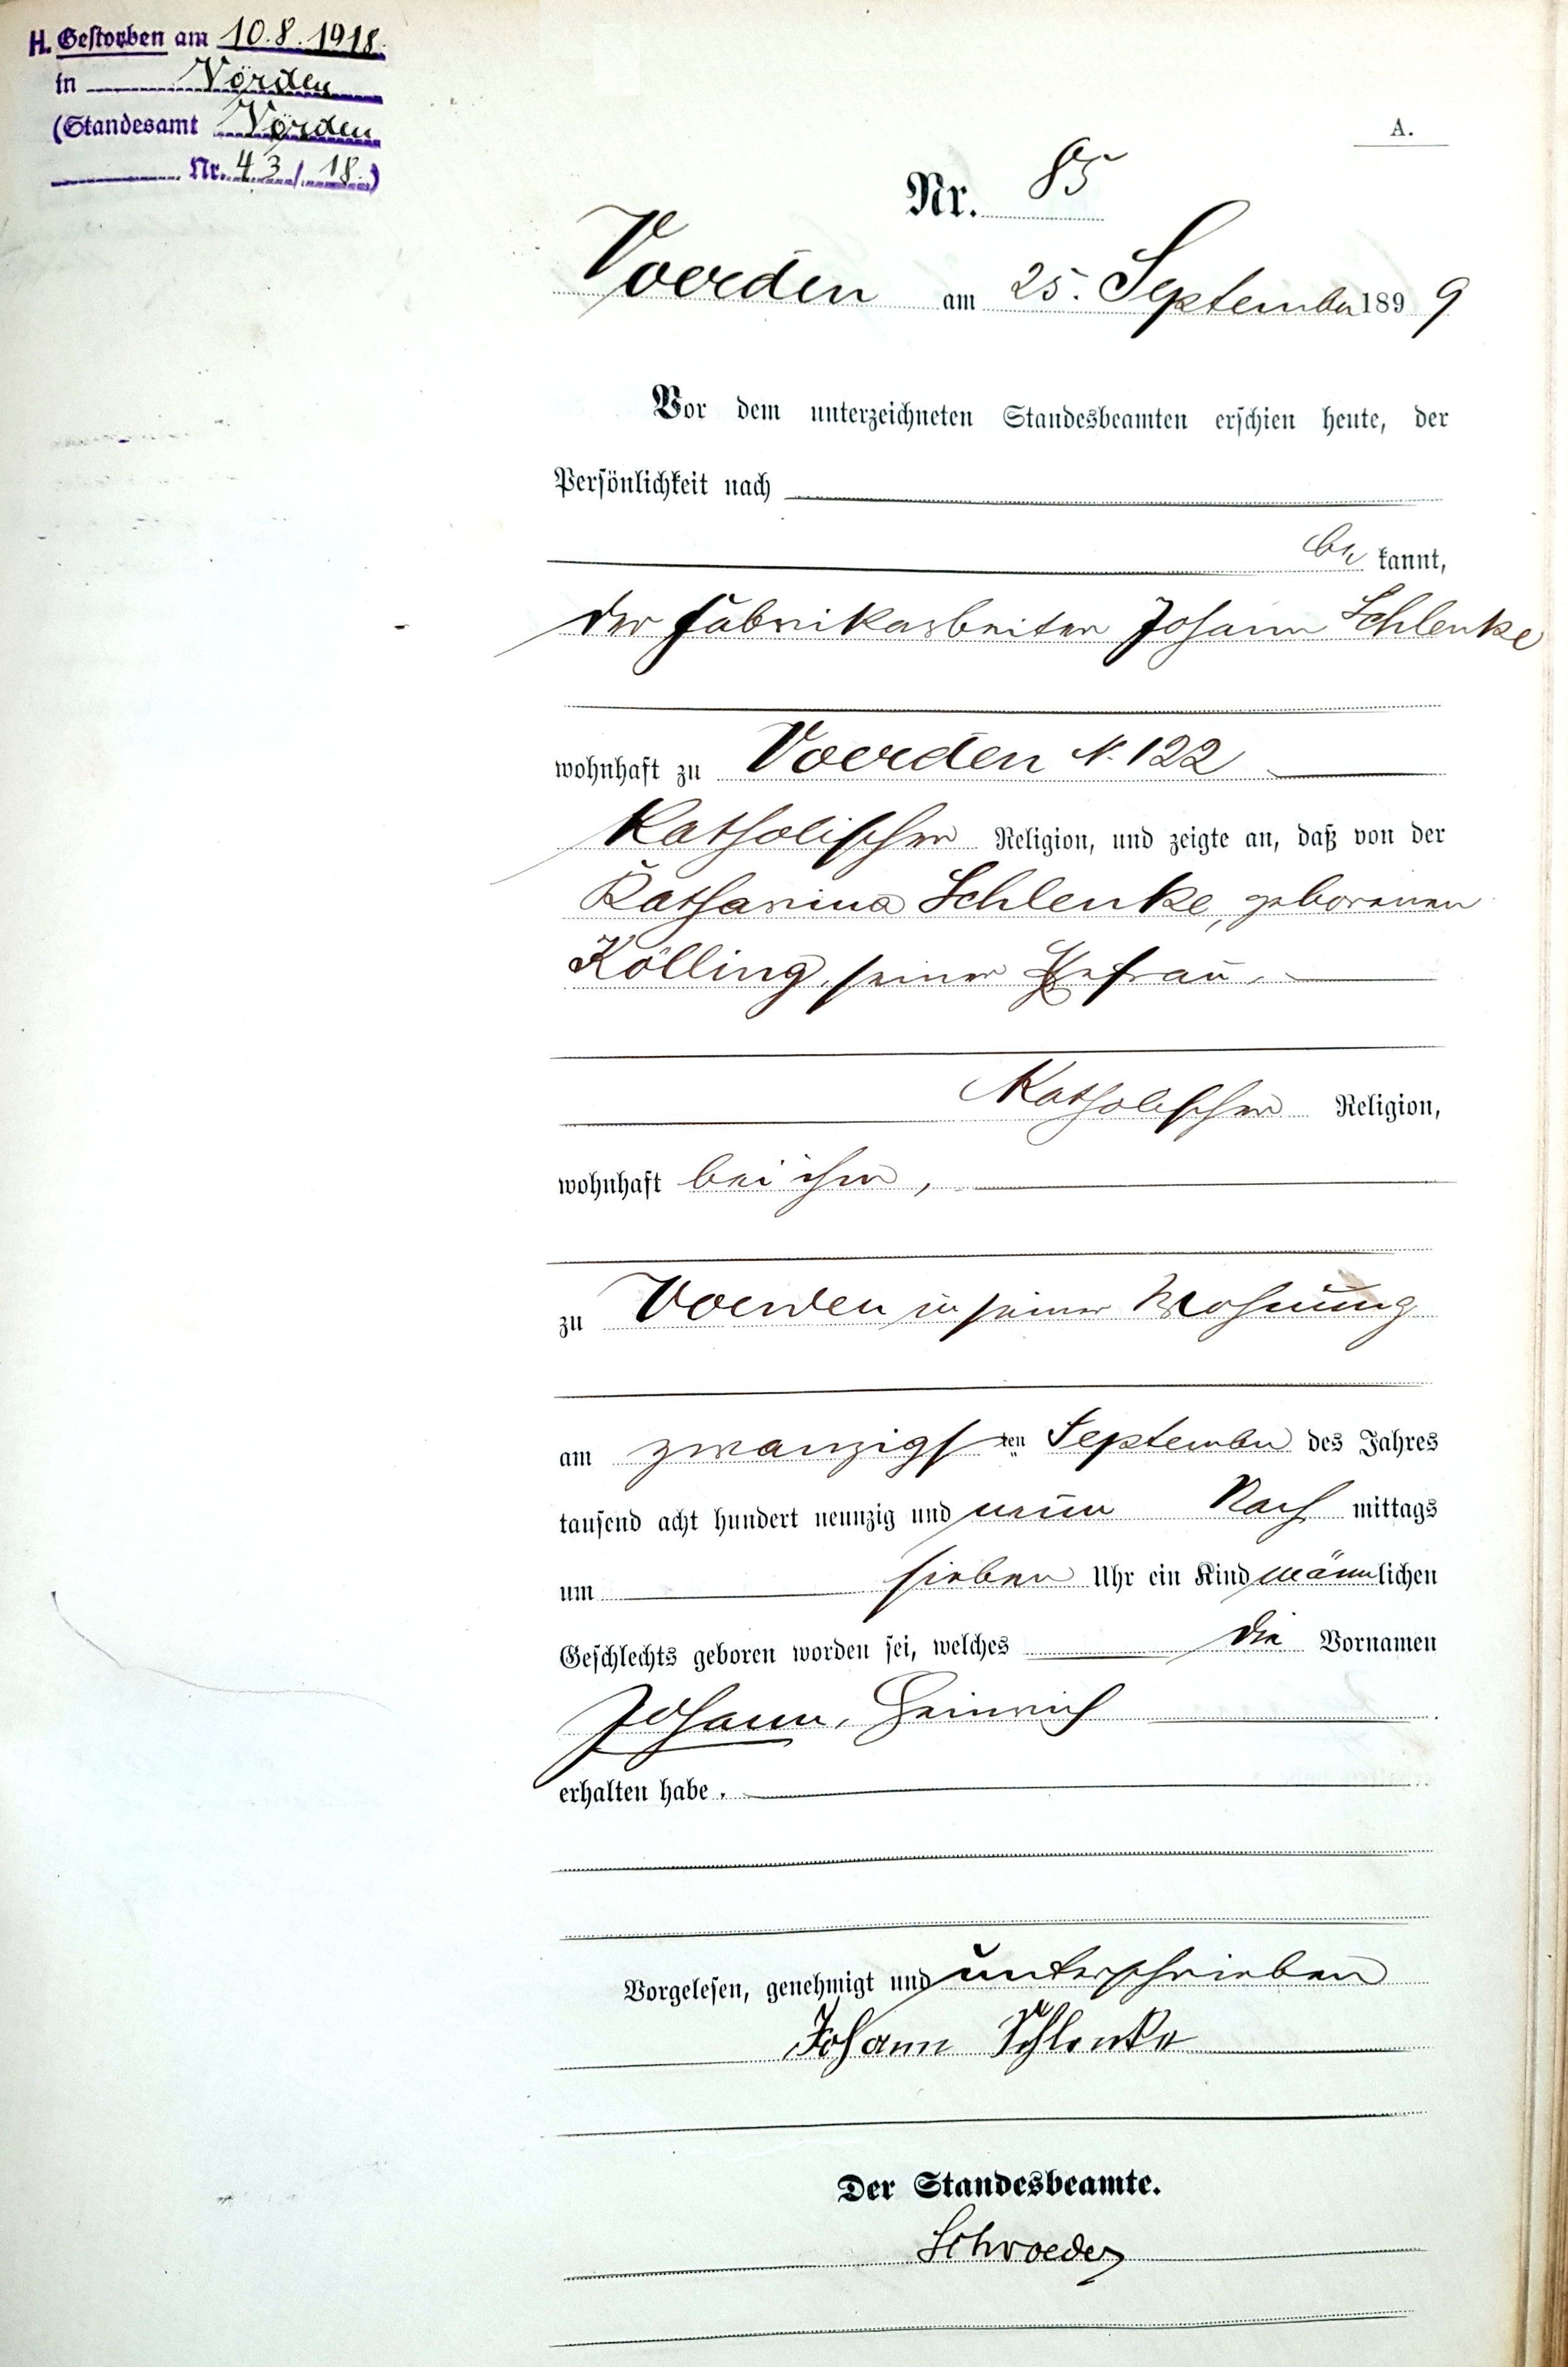 H. Gestorben am 10.8.1918.
in Vörden
(Standesamt Vörden
Nr. 43/18.)
A.
Nr. 85
Voerden am 25. September 1899
Vor dem unterzeichneten Standesbeamten erschien heute, der
Persönlichkeit nach
be kannt,
der Fabrikarbeiter Johann Schlenke
wohnhaft zu Voerden N. 122
katholischer Religion, und zeigte an, daß von der
Katharina Schlenke, geborenen
Kölling, seiner Ehefrau,
katholischer Religion,
wohnhaft bei ihm,
zu Voerden in seiner Wohnung
am zwanzigsten September des Jahres
tausend acht hundert neunzig und neun Nach mittags
um sieben Uhr ein Kind männlichen
Geschlechts geboren worden sei, welches die Vornamen
Johann, Heinrich
erhalten habe.
Vorgelesen, genehmigt und unterschrieben
Johann Schlenke
Der Standesbeamte.
Schroeder